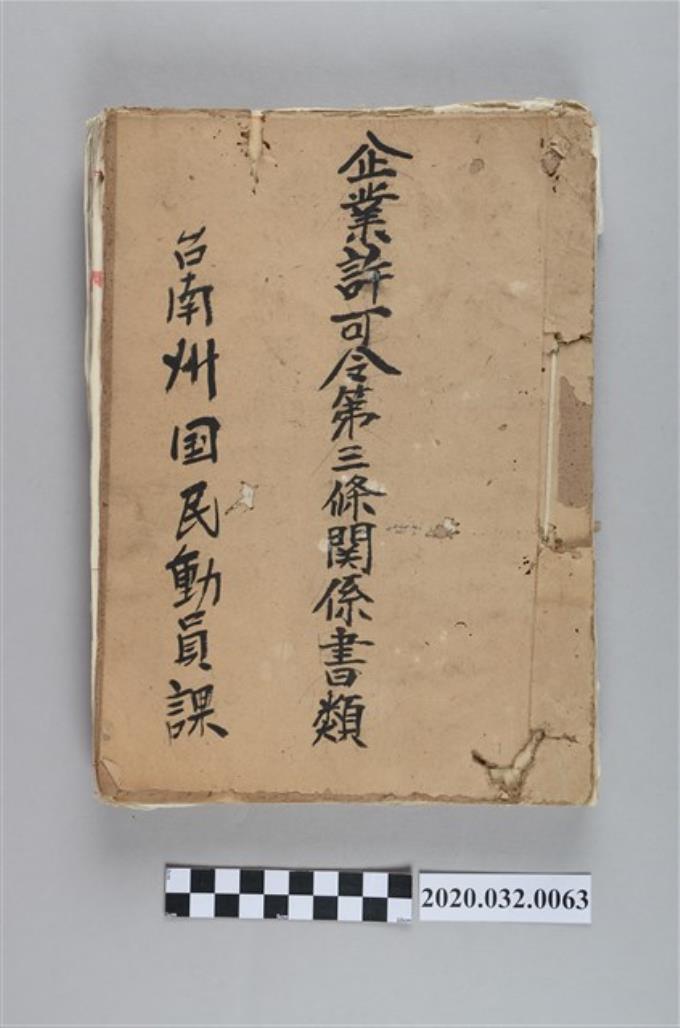 企業許可令第三條関係書類
台南州国民動員課
2020.032.0063